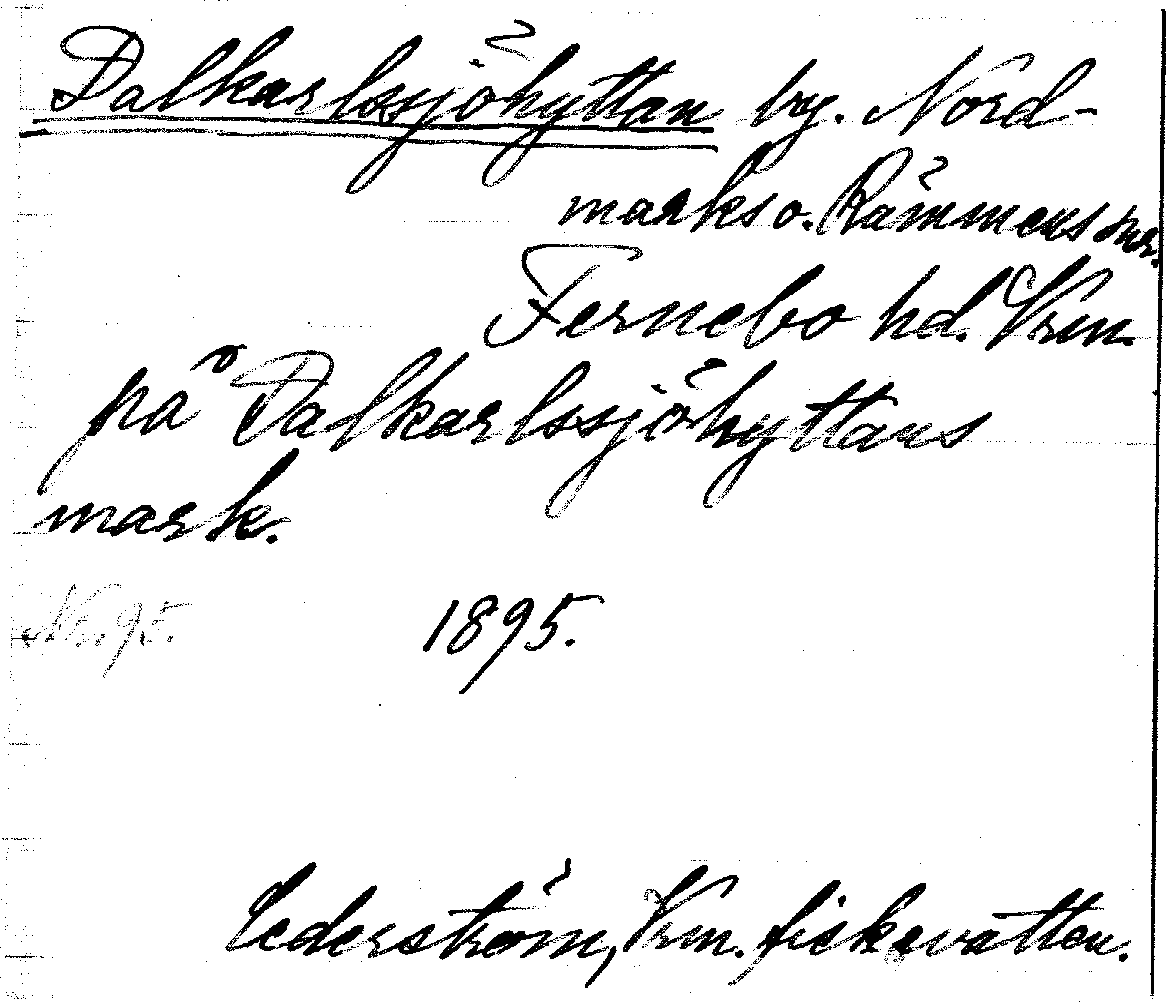 Dalkarlssjöhyttan by. Nord-
marks o. Rämmens snr.
Fernebo hd. Vrm.
på Dalkarlssjöhyttans
mark.
Nr. 95. 1895.
Cederström, Vrm. fiskevatten.